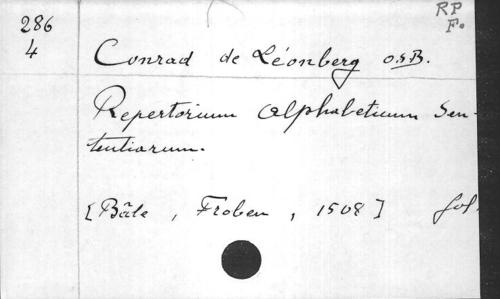 286
4
RP
F.
Conrad de Léonberg O.S.B.
Repertorium alphabeticum Sen-
tentiarum.
[Bâle, Froben, 1508] fol.